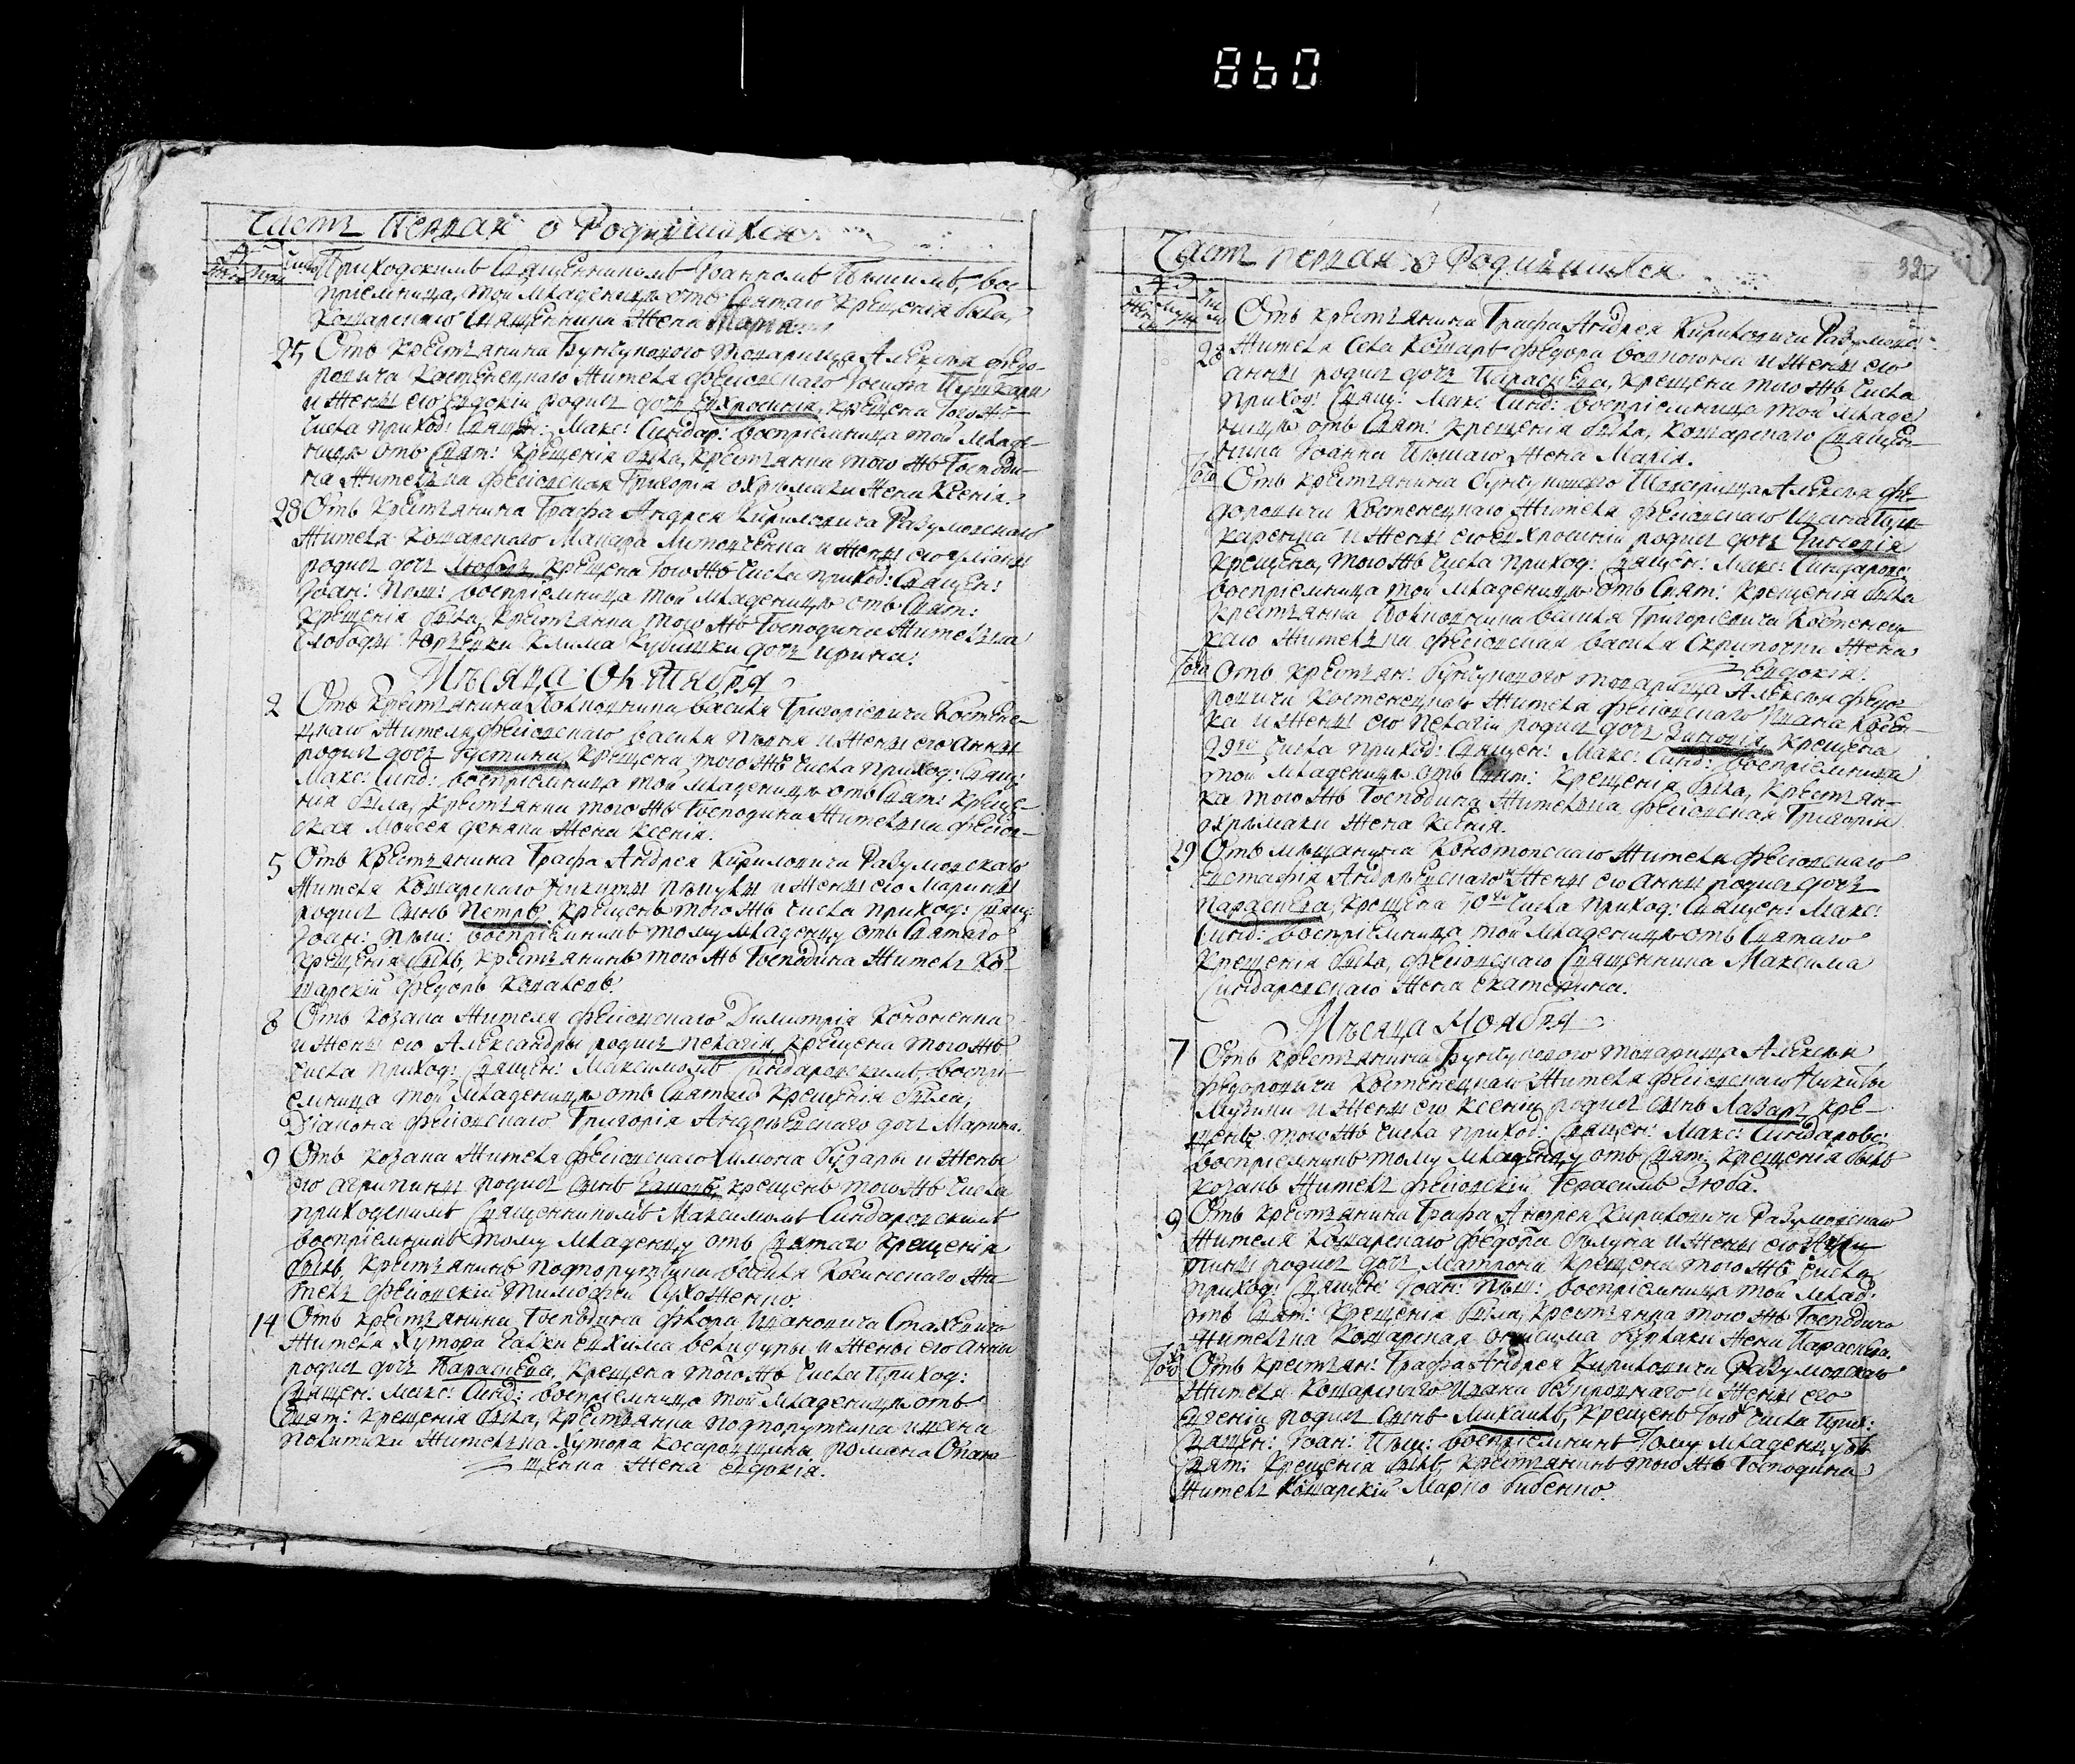 860
Часть первая о Родившихся
число
Приходскимъ Священникомъ Іоанномъ Пѣшимъ, вос-
пріемница, той младеницѣ отъ Святаго Крещенія была,
Кошарскаго Священника Жена Марія
25 Отъ Крестьянина Бунчукового товарища Алексѣя Федо-
ровича Костенецкаго Жителя фесювскаго Іосифа Пушкаря
и Жены его Евдокіи родися дочь Евхросинія, крещена того жъ
числа приход: Священ: Макс: Синдар: воспріемница той младе-
ницѣ отъ Свят: Крещенія была, крестьянка того жъ Господи-
на Жителька фесювская Григорія охрѣмаки Жена Ксенія.
28 Отъ Крестьянина Графа Андрея Кириловича Разумовскаго
Жителя Кошарскаго Макара Литовченка и Жены его
родися дочь Любовь, крещена того жъ числа приход: Священ:
Іоан: Пѣш: воспріемница той младеницѣ отъ Свят:
Крещенія была, крестьянка того жъ Господина Жителька
Слободы Юрьевки Клима Кубишки дочь ирина.
Мѣсяца Октября
2 Отъ Крестьянина Полковника Василя Григоріевича Костене-
цкаго Жителя фесювскаго Василя и Жены его анны
родися дочь Устинія, крещена того жъ числа приход: Свящ:
Макс: Синд: воспріемница той младеницѣ отъ Свят: Креще-
нія была, крестьянка того жъ Господина Жителька фесюв-
ская Моисея Жена Ксенія.
5 Отъ Крестьянина Графа Андрея Кириловича Разумовскаго
Жителя Кошарскаго Никиты и Жены его Марины
родися сынъ Петръ. Крещенъ того жъ числа приход: Свящ:
Іоан: Пѣш: воспріемникъ тому младенцу отъ Святаго
Крещенія былъ, крестьянинъ того жъ Господина Житель Ко-
шарскій Федоръ Коваль.
8 Отъ Козака Жителя фесювскаго Димитрія Кононенка
и Жены его Александры родися Пелагія, Крещена того жъ
числа приход: Священ: Максимомъ Синдаровскимъ, воспрі-
емница той младеницѣ отъ Святаго Крещенія была,
Діакона фесювскаго Григорія Андрѣевскаго дочь Марина.
9 Отъ козака Жителя фесювскаго Симона и Жены
его агрипины родися сынъ крещенъ того жъ числа
приходскимъ Священникомъ Максимомъ Синдаровскимъ
воспріемникъ тому младенцу отъ Святаго Крещенія
былъ, крестьянинъ подпорутчика Василя Жи-
тель фесювскій Тимофей Сухоженко.
14 Отъ крестьянина Господина Флора Ивановича Стахевича
Жителя Хутора Галки Евхима и Жены его анны
родися дочь Параскева, крещена того жъ числа Приход:
Священ: Макс: Синд: воспріемница той младеницѣ отъ
Свят: Крещенія была, крестьянка подпорутчика ивана
Жителька Хутора Косаровщины романа
Жена евдокія.
Часть первая о Родившихся
32
28 Отъ крестьянина Графа Андрея Кириловича Разумовс:
Жителя села Кошаръ Федора и Жены его
анны родися дочь Параскева, крещена того жъ числа
приход: Свящ: Макс: Синд: воспріемница той младе-
ницѣ отъ Свят: Крещенія была, Кошарскаго Священ-
ника Іоанна Пѣшаго Жена Марія.
Того Отъ крестьянина бунчуковаго Товарища Алексѣя Фе-
доровича Костенецкаго Жителя фесювскаго Игната
и Жены его Евхросиніи родися дочь
Крещена, того жъ числа приход: Священ: Макс: Синдаровс:
воспріемница той младеницѣ отъ Свят: Крещенія была
крестьянка Полковника Василя Григоріевича Костенец-
каго Жителька фесювская Василя Скрипочки Жена
Евдокія.
Того Отъ крестьян: Бунчукового товарища Алексѣя Федо-
ровича Костенецкаго Жителя фесювскаго Ивана
и Жены его Пелагіи родися дочь Зиновія, Крещена
29го числа приход: Священ: Макс: Синд: воспріемница
той младеницѣ отъ Свят: Крещенія была, крестьян-
ка того жъ Господина Жителька фесювская Григорія
охрѣмаки Жена Ксенія.
29 Отъ мѣщанина Конотопскаго Жителя фесювскаго
Евстафія Андрѣевскаго Жены его анны родися дочь
Параскева, крещена 30го числа приход: Священ: Макс:
Синд: воспріемница той младеницѣ отъ Святаго
Крещенія была, фесювскаго Священника Максима
Синдаровскаго Жена екатерина.
Мѣсяца Ноября
7 Отъ крестьянина Бунчуковаго товарища Алексѣя
Федоровича Костенецкаго Жителя фесювскаго Никиты
Музики и Жены его Ксеніи родися сынъ Лазаръ, кре-
щенъ того жъ числа приход: Священ: Макс: Синдаровс:
воспріемникъ тому младенцу отъ Свят: Крещенія былъ
козакъ Житель фесювскій Герасимъ Дзюба.
9 Отъ крестьянина Графа Андрея Кириловича Разумовскаго
Жителя Кошарскаго Федора и Жены его Агри-
пины родися дочь Матрона, Крещена того жъ числа
приход: Священ: Іоан: Пѣш: воспріемница той млад:
отъ Свят: Крещенія была, крестьянка того жъ Господина
Жителька Кошарская Онисима Жена Параскева.
Того Отъ крестьян: Графа Андрея Кириловича Разумовскаго
Жителя Кошарскаго Ивана и Жены его
Евгеніи родися сынъ Михаилъ, крещенъ того числа Прих:
Священ: Іоан: Пѣш: воспріемникъ тому младенцу отъ
Свят: Крещенія былъ, крестьянинъ того жъ Господина
Житель Кошарскій Марко Бибенко.